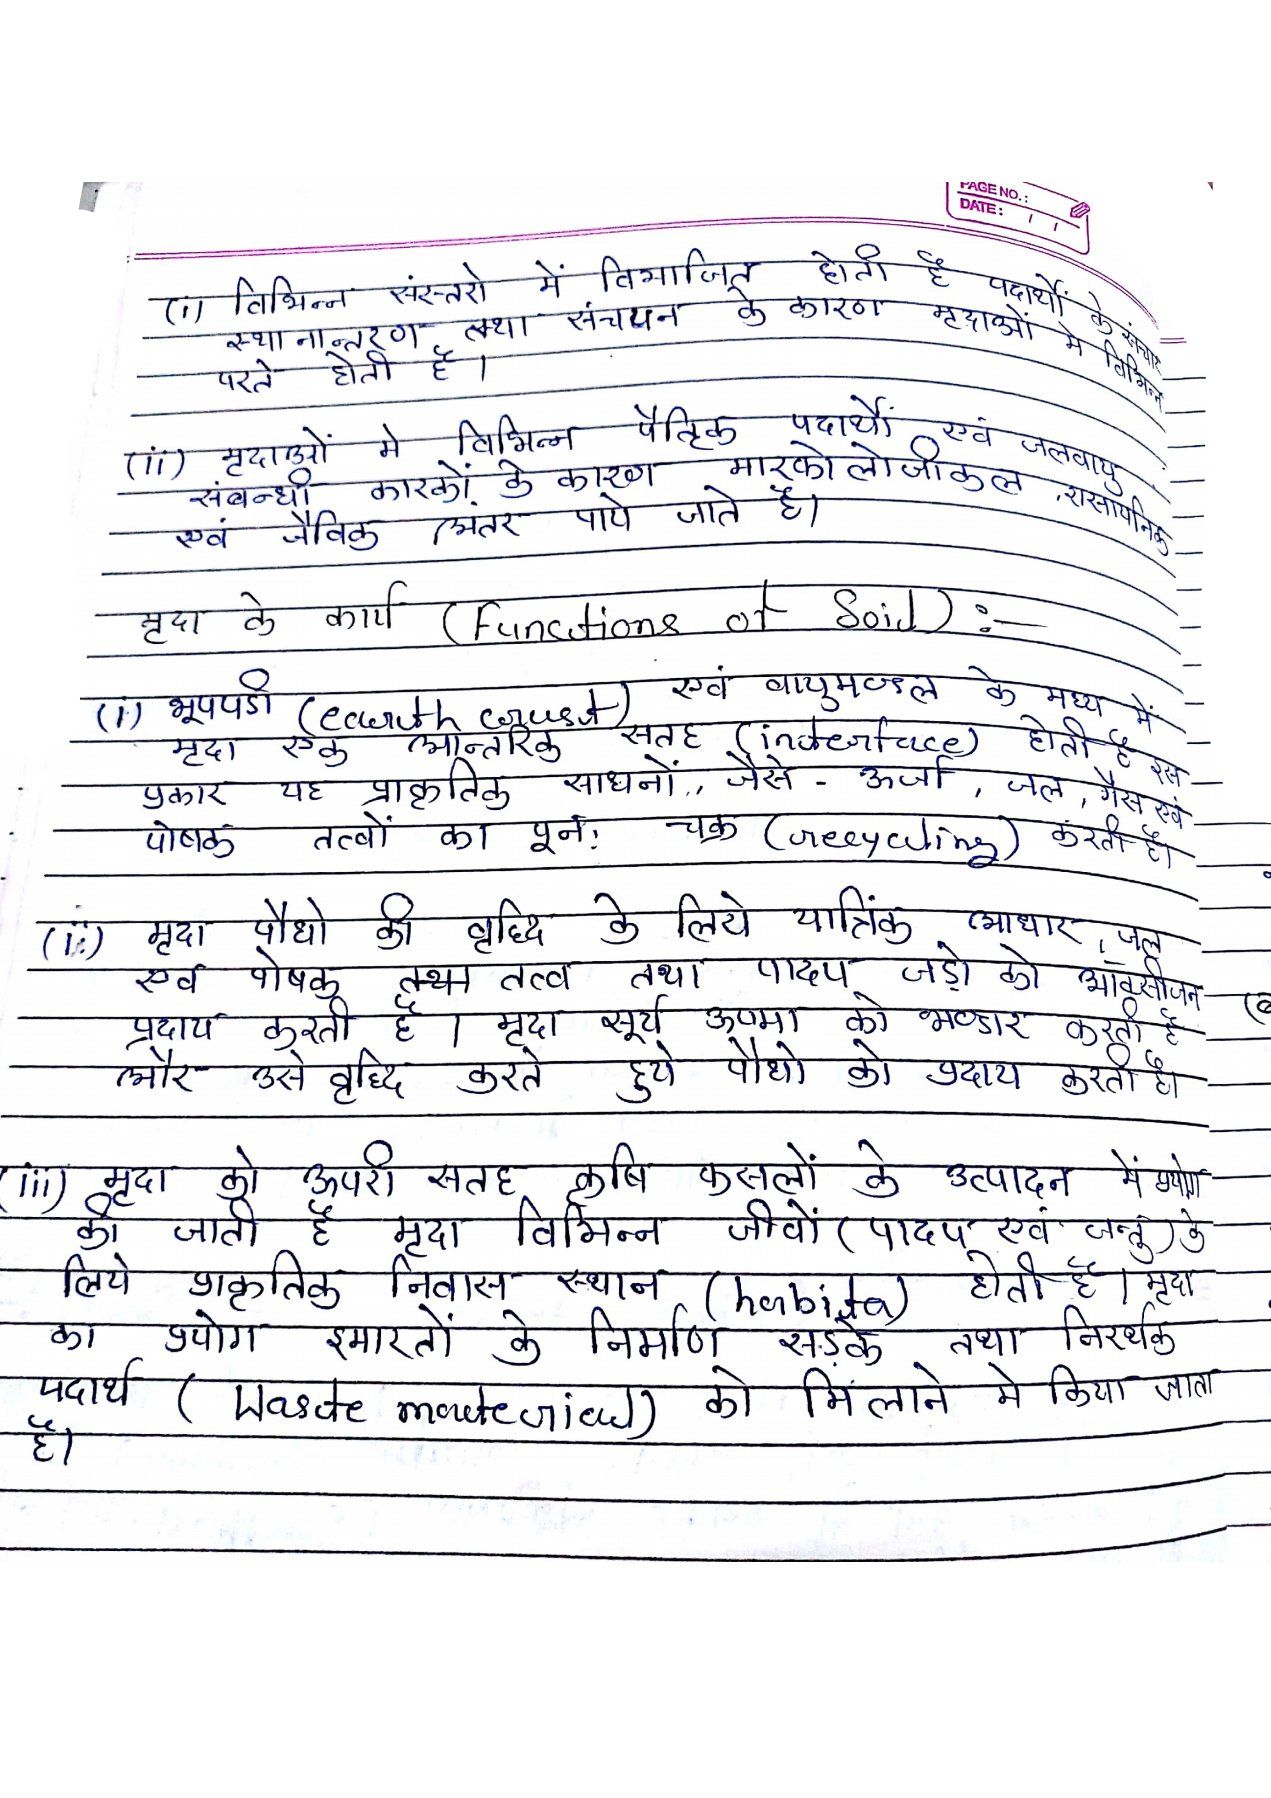 PAGE NO.:
DATE: / /
(i) विभिन्न संस्तरो में विभाजित होती है पदार्थों के संचार
स्थानान्तरण तथा संचयन के कारण मृदाओं मे विभिन्न
परते होती है।
(ii) मृदाओं मे विभिन्न पैतृिक पदार्थों एवं जलवायु
संबन्धी कारकों के कारण मारकोलोजीकल, रासायनिक
एवं जैविक अंतर पाये जाते है।
मृदा के कार्य (Functions of Soil) :—
(i) भूपपडी (earth crust) एवं वायुमण्डल के मध्य में
मृदा एक आन्तरिक सतह (interface) होती है इस
प्रकार यह प्राकृतिक साधनों, जैसे - ऊर्जा, जल, गैस एवं
पोषक तत्वों का पूर्न: चक्र (recycling) करती है।
(ii) मृदा पौधो की वृध्दि के लिये यात्रिंक आधार, जल
एवं पोषक तथा तत्व तथा पादप जड़ो को ऑक्सीजन
प्रदाय करती है। मृदा सूर्य ऊष्मा को भण्डार करती है
और उसे वृध्दि करते हुये पौधो को प्रदाय करती है।
(iii) मृदा को ऊपरी सतह कृषि फसलों के उत्पादन में प्रयोग
की जाती है मृदा विभिन्न जीवों (पादप एवं जन्तु) के
लिये प्राकृतिक निवास स्थान (habita) होती है। मृदा
का प्रयोग इमारतों के निर्माण सड़के तथा निरर्थक
पदार्थ (Waste material) को मिलाने मे किया जाता
है।